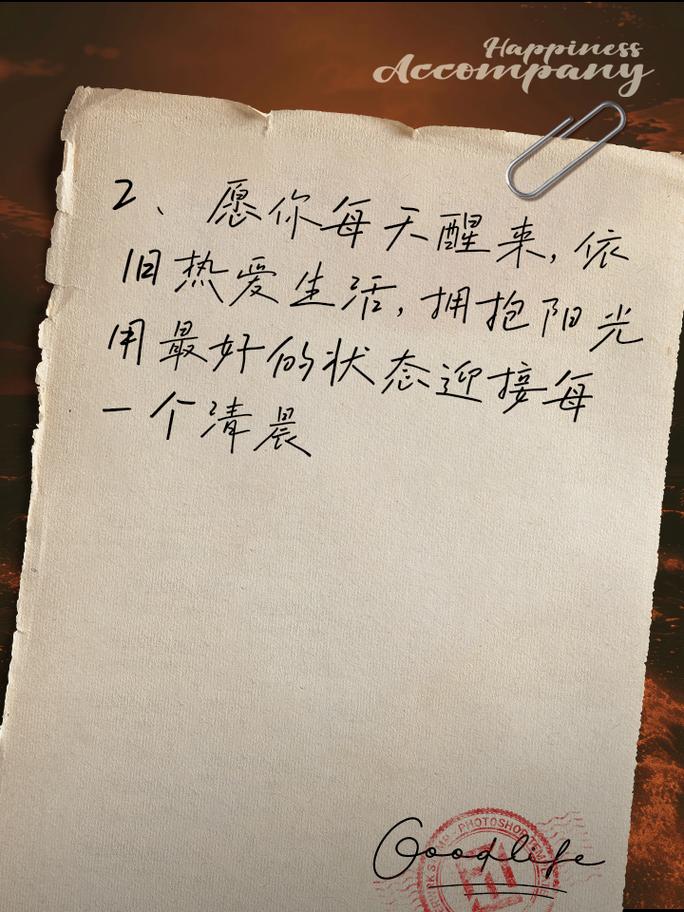 Happiness
Accompany
2、愿你每天醒来,依
旧热爱生活,拥抱阳光
用最好的状态迎接每
一个清晨
PHOTOSHOP
Goodlife